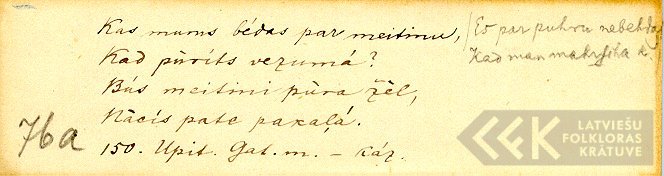 Kas mums bēdas par meitiņu,
Kad pūrits vezumá?
Būs meitiņi pūra žēl,
Nācīs pate pakaļá.
150. Upīt. Gat. m. – káz.
Es par puhru nebehdaj
Kad man
76a
LATVIEŠU
FOLKLORAS
KRĀTUVE